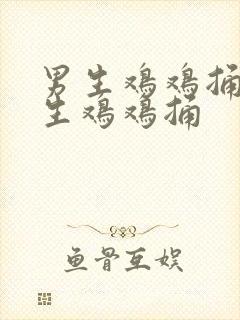 男生鸡鸡捅
生鸡鸡捅
鱼骨互娱